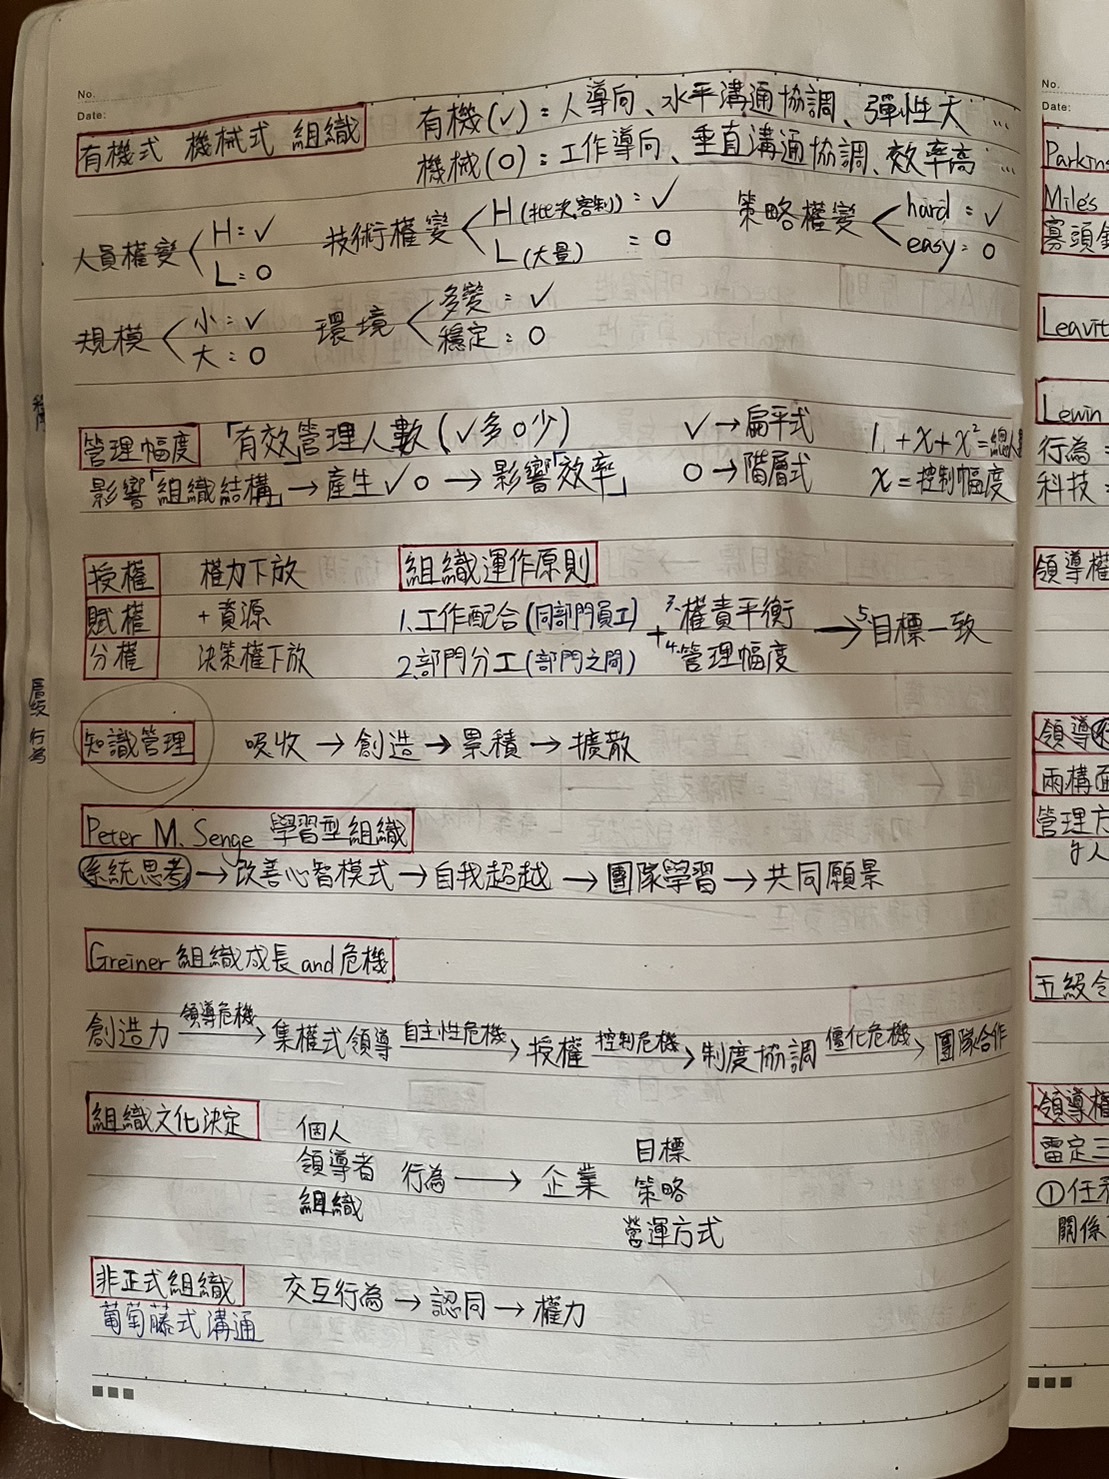 No.
Date:
有機式 機械式 組織
有機(✓):人導向、水平溝通協調、彈性大…
機械(O):工作導向、垂直溝通協調、效率高…
人員權變 H:✓
L:O
技術權變 H(批次客制):✓
L(大量):O
策略權變 hard:✓
easy:O
規模 小:✓
大:O
環境 多變:✓
穩定:O
管理幅度 「有效」管理人數(✓多O少)
✓→扁平式
1+x+x²=總人
影響「組織結構」→產生✓O→影響「效率」
O→階層式
x=控制幅度
授權 權力下放
賦權 +資源
分權 決策權下放
組織運作原則
1.工作配合(同部門員工)
2.部門分工(部門之間)
+
3.權責平衡
4.管理幅度
→5.目標一致
知識管理 吸收→創造→累積→擴散
Peter M. Senge 學習型組織
系統思考→改善心智模式→自我超越→團隊學習→共同願景
Greiner 組織成長 and 危機
創造力 領導危機→ 集權式領導 自主性危機→ 授權 控制危機→ 制度協調 僵化危機→ 團隊合作
組織文化決定
個人
領導者 行為→企業
組織
目標
策略
營運方式
非正式組織 交互行為→認同→權力
葡萄藤式溝通
層級 行為
No.
Date:
Mile's
寡頭
Leavit
Lewin
行為=
科技=
領導權
領導
兩構面
管理方
五級
領導權
雷定三
①任
關係